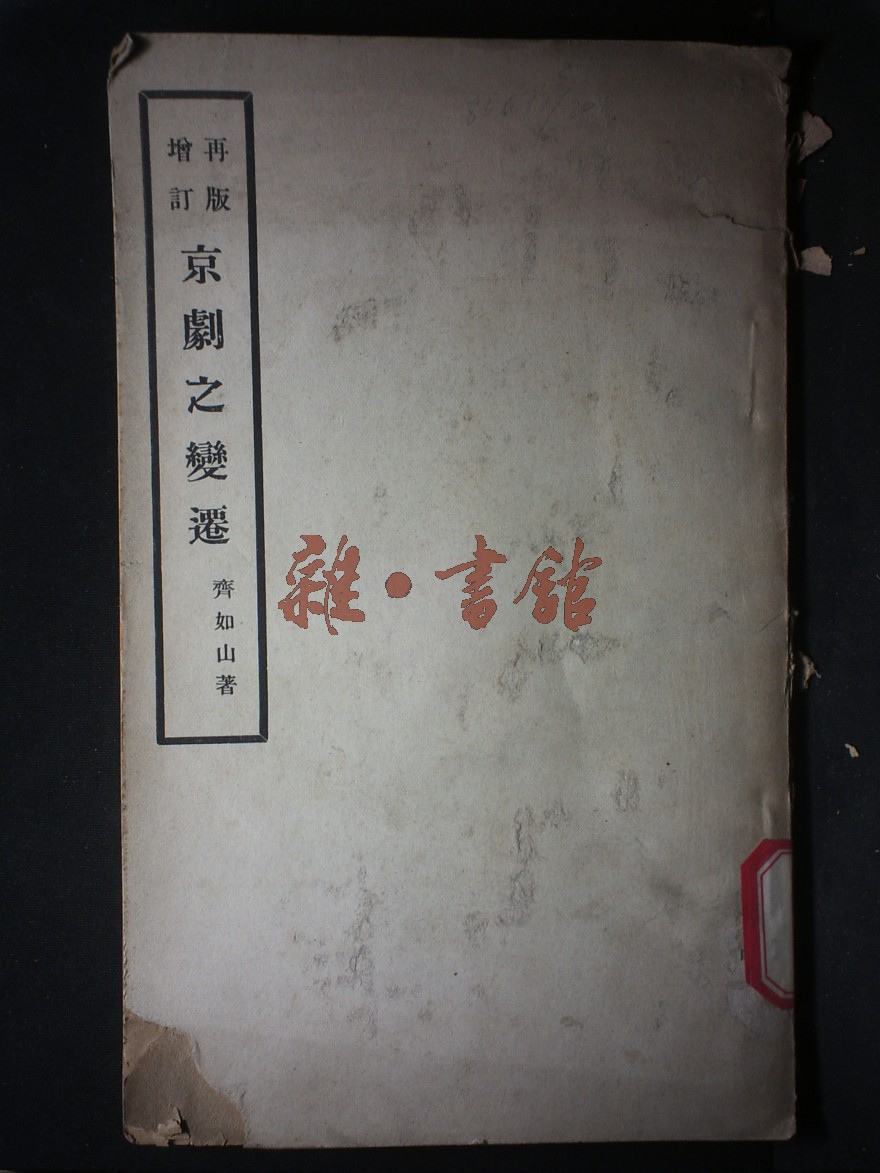 再版
增訂
京劇之變遷
齊如山著
雜·書館